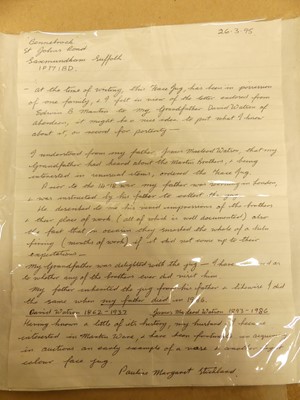 26-3-95
St Johns Road
Saxmundham Suffolk
IP17 1BD.
At the time of writing, this Face Jug, has been in possession
of our family, & I felt in view of the letter endorsed from
Edwin B Martin to my Grandfather David Watson of
Aberdeen, it might be a nice idea to put what I know
about it, on record for posterity —
I understand from my father James McLeod Watson, that my
Grandfather had heard about the Martin Brothers, & being
interested in unusual items, ordered the Face Jug.
Prior to the 1914 war, my father was in London,
& was instructed by his father to collect the jug.
He described to me his vivid impressions of the brothers
& their place of work (all of which is well documented) also
the fact that on occasion they smashed the whole of a kiln
firing (months of work) if it did not come up to their
expectations —
My Grandfather was delighted with the jug — I have no
to whether any of the brothers ever did meet him
My father inherited the jug from his father & likewise I did
the same when my father died in 1986.
David Watson 1862-1937 James McLeod Watson 1893-1986
Having known a little of its history, my husband & I have
interested in Martin Ware, & have been fortunate to acquire
in auctions an early example of a vase &
colour face jug.
Pauline Margaret Strickland